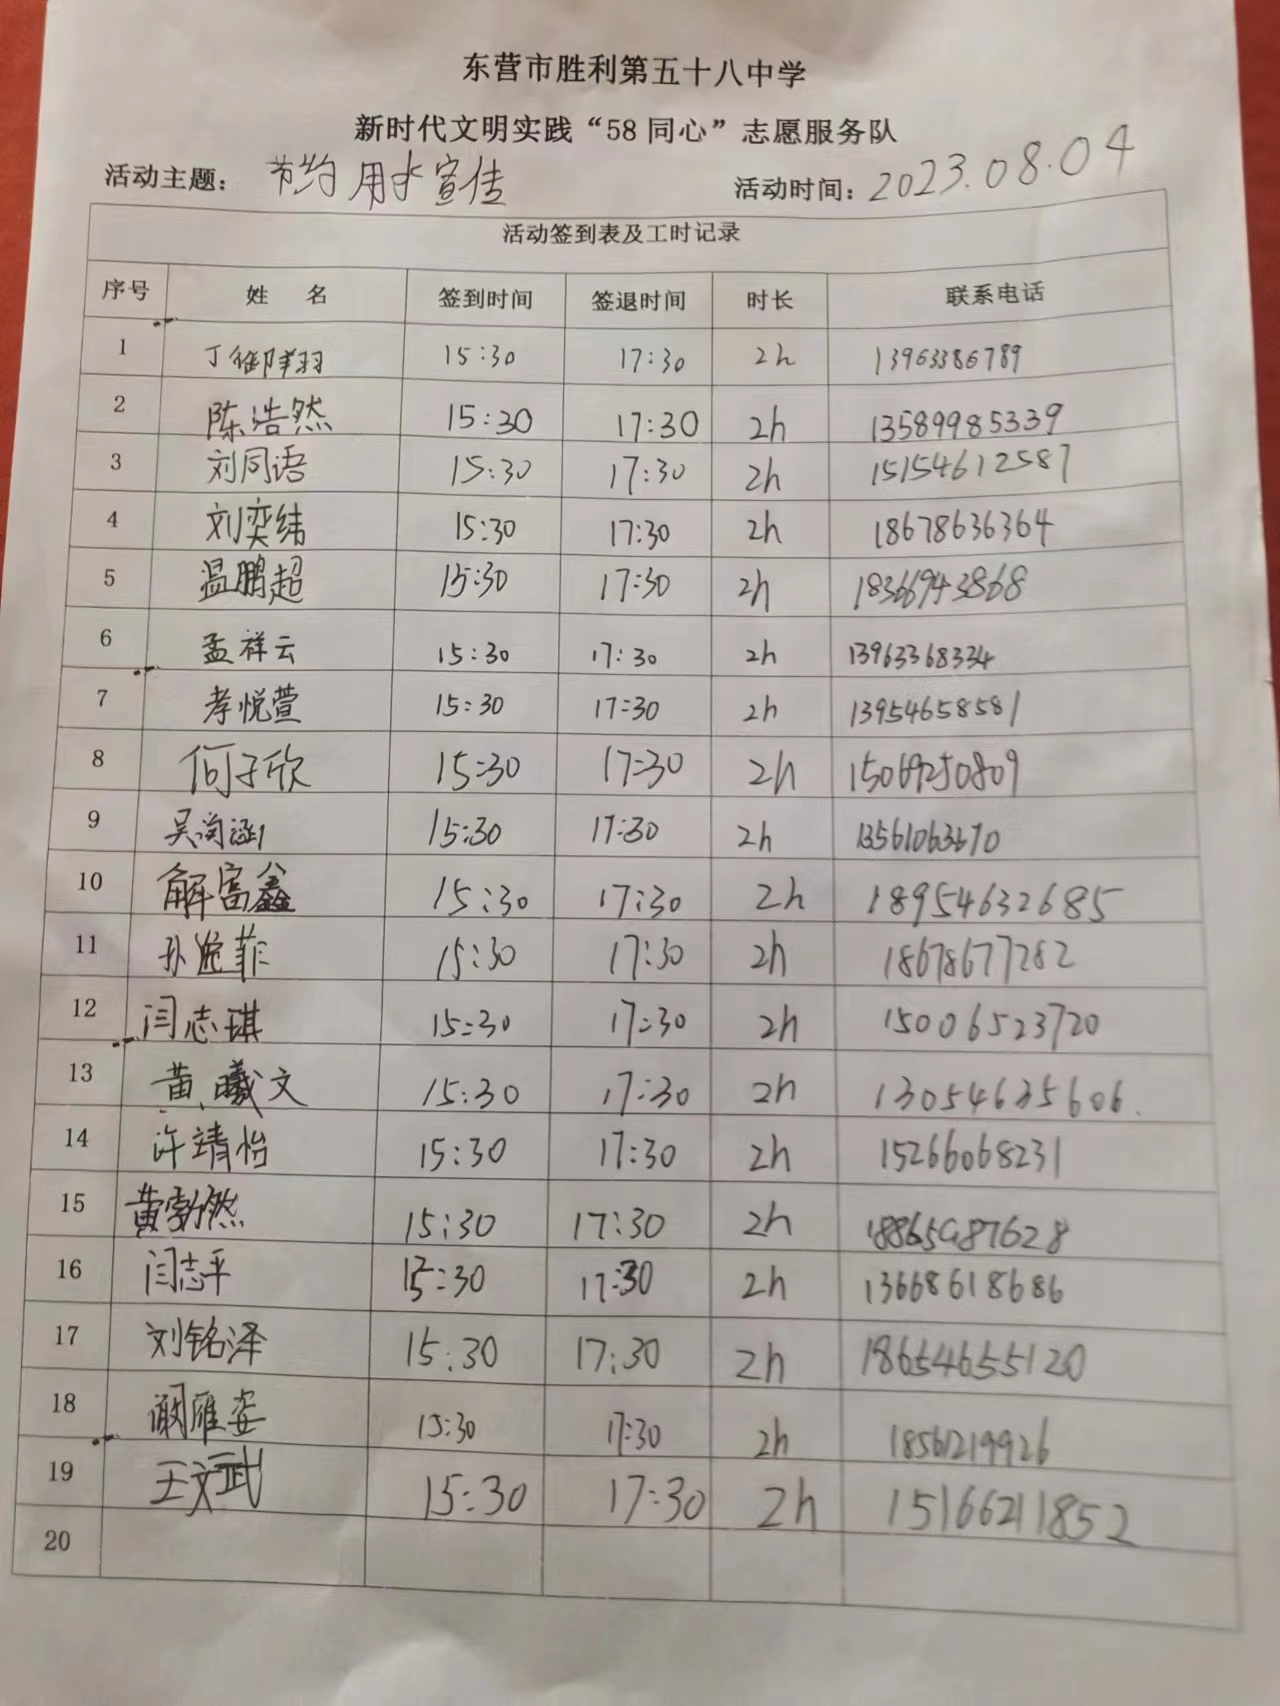 东营市胜利第五十八中学
新时代文明实践“58同心”志愿服务队
活动主题： 节约用水宣传 活动时间：2023.08.04
活动签到表及工时记录
序号 姓 名 签到时间 签退时间 时长 联系电话
1 15:30 17:30 2h 13963386789
2 陈浩然 15:30 17:30 2h 13589985339
3 刘同语 15:30 17:30 2h 15154612587
4 刘奕纬 15:30 17:30 2h 18678636364
5 温鹏超 15:30 17:30 2h 18366943868
6 孟祥云 15:30 17:30 2h 13963368334
7 孝悦萱 15:30 17:30 2h 13954658581
8 何子欣 15:30 17:30 2h 15069250809
9 15:30 17:30 2h
10 解富鑫 15:30 17:30 2h 18954632685
11 15:30 17:30 2h 18678677282
12 闫志琪 15:30 17:30 2h 15006523720
13 黄曦文 15:30 17:30 2h 13054635606
14 许靖怡 15:30 17:30 2h 15266068231
15 黄勃然 15:30 17:30 2h 18865987628
16 闫志平 15:30 17:30 2h 13668618686
17 刘铭泽 15:30 17:30 2h 18654655120
18 15:30 17:30 2h 18561219926
19 王文武 15:30 17:30 2h 15166211852
20